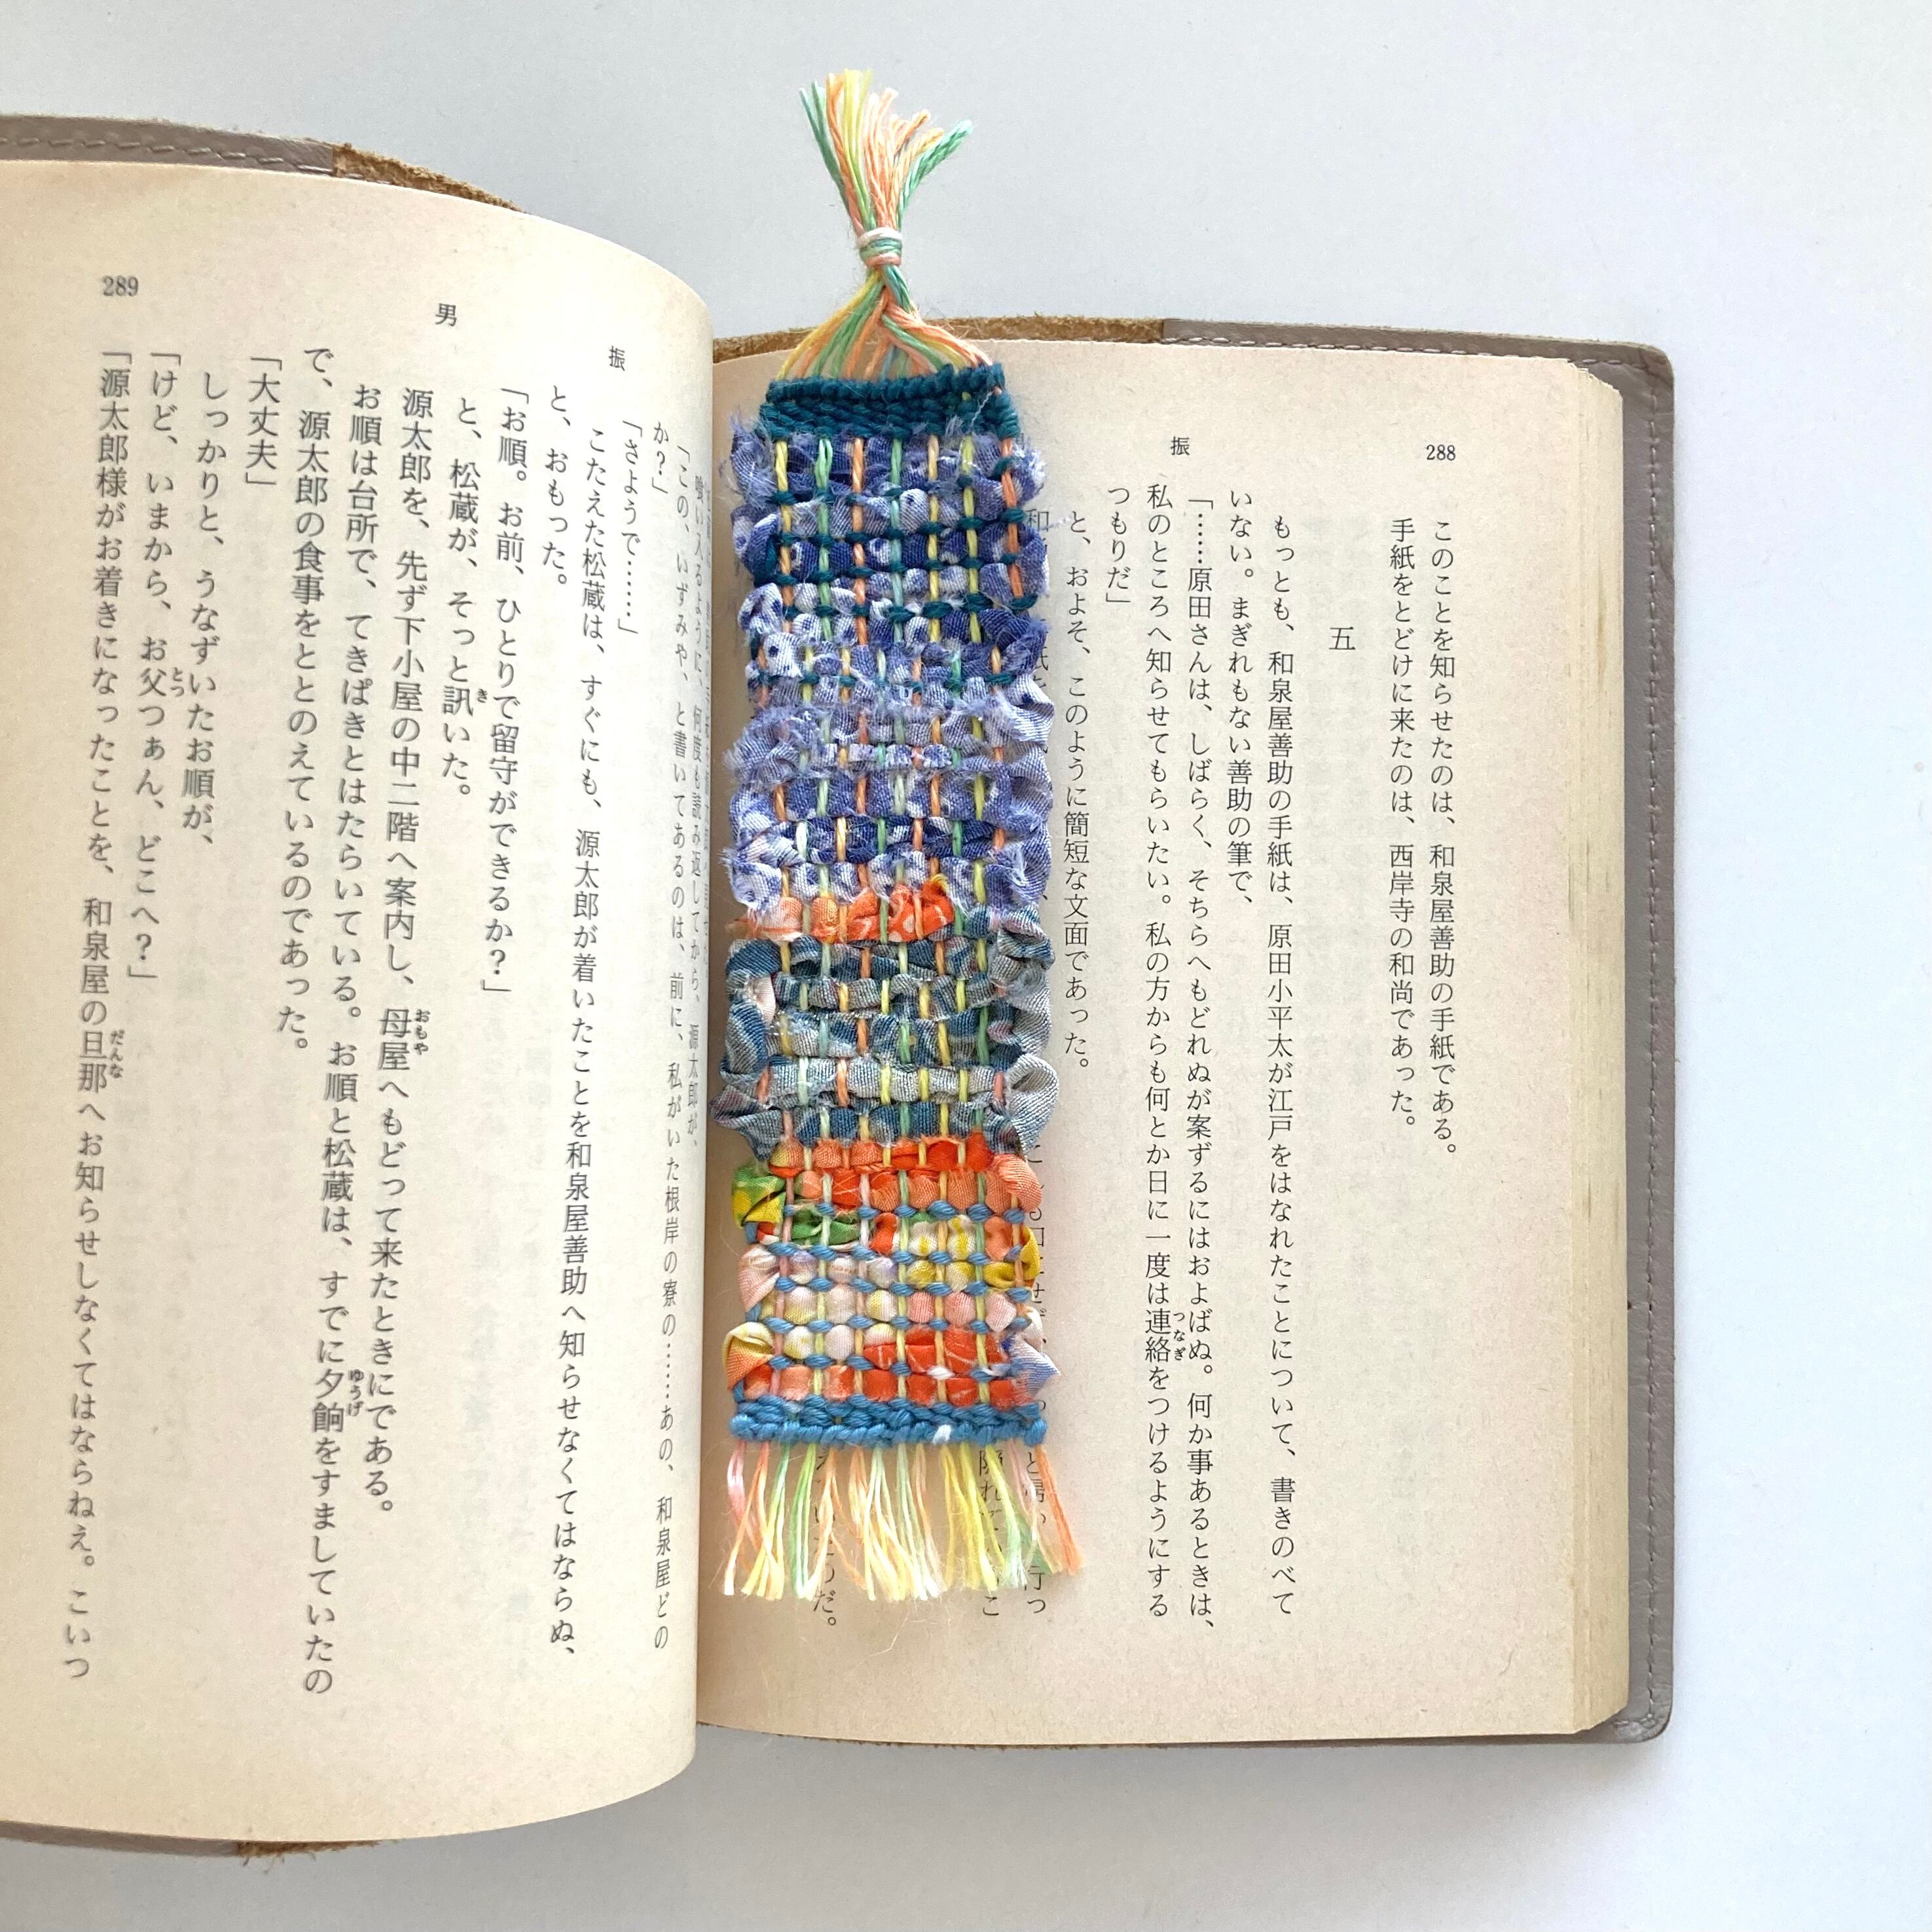 288
振
このことを知らせたのは、和泉屋善助の手紙である。
手紙をとどけに来たのは、西岸寺の和尚であった。
五
もっとも、和泉屋善助の手紙は、原田小平太が江戸をはなれたことについて、書きのべて
いない。まぎれもない善助の筆で、
「……原田さんは、しばらく、そちらへもどれぬが案ずるにはおよばぬ。何か事あるときは、
私のところへ知らせてもらいたい。私の方からも何とか日に一度は連絡つなぎをつけるようにする
つもりだ」
と、およそ、このように簡短な文面であった。
和
だ。
喰い入るように、何度も読み返してから、源太郎が、
「この、いずみや、と書いてあるのは、前に、私がいた根岸の寮の……あの、和泉屋どの
か？」
「さようで……」
こたえた松蔵は、すぐにも、源太郎が着いたことを和泉屋善助へ知らせなくてはならぬ、
と、おもった。
「お順。お前、ひとりで留守ができるか？」
と、松蔵が、そっと訊きいた。
源太郎を、先ず下小屋の中二階へ案内し、母屋おもやへもどって来たときにである。
お順は台所で、てきぱきとはたらいている。お順と松蔵は、すでに夕餉ゆうげをすましていたの
で、源太郎の食事をととのえているのであった。
「大丈夫」
しっかりと、うなずいたお順が、
「けど、いまから、お父とっつぁん、どこへ？」
「源太郎様がお着きになったことを、和泉屋の旦那だんなへお知らせしなくてはならねえ。こいつ
振
男
289